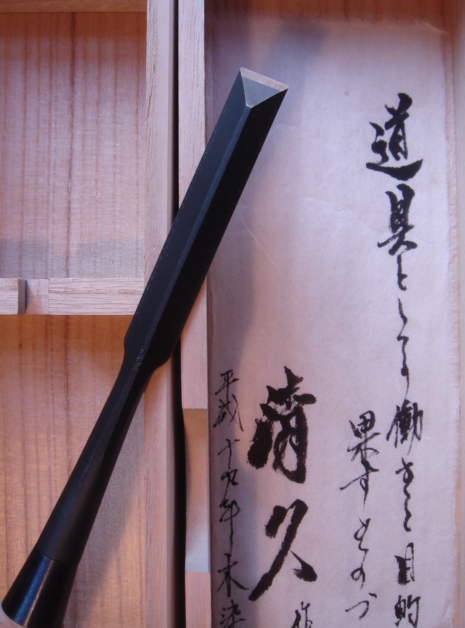 道具として働きと目的
果すものづ
清久作
平成十九年